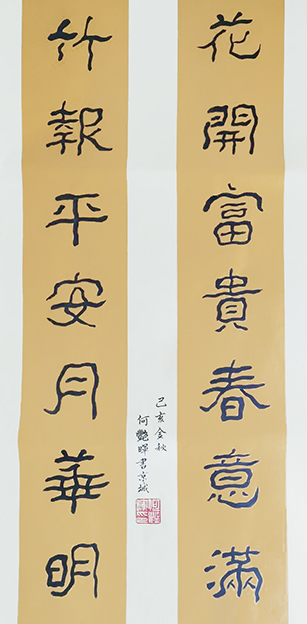 花開富貴春意滿
竹報平安月華明
己亥金秋
何艷暉書京城